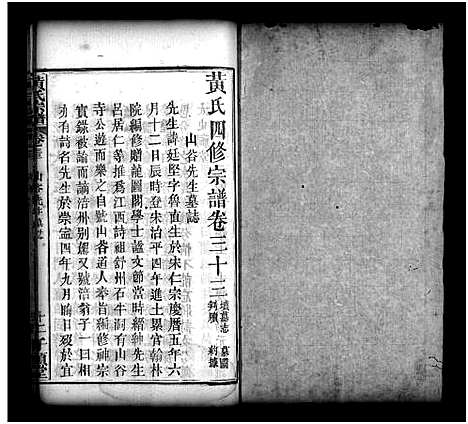 黃氏四修宗譜卷三十三 墳墓志 墓圖
山谷先生墓誌
先生諱廷堅字魯直生於宋仁宗慶曆五年六
月十二日辰時登朱治平四年進士累官翰林
院編修贈龍圖閣學士謚文節當時縉紳先生
呂居仁等推爲江西詩祖舒州石牛洞有山谷
寺公遊而樂之自號山谷道人奉旨編修神宗
實錄被論而謫涪州别駕又號涪翁于一日相
劝有詩名先生於崇寍四年九月晦日殁於宜
黃氏宗譜 卷三十三